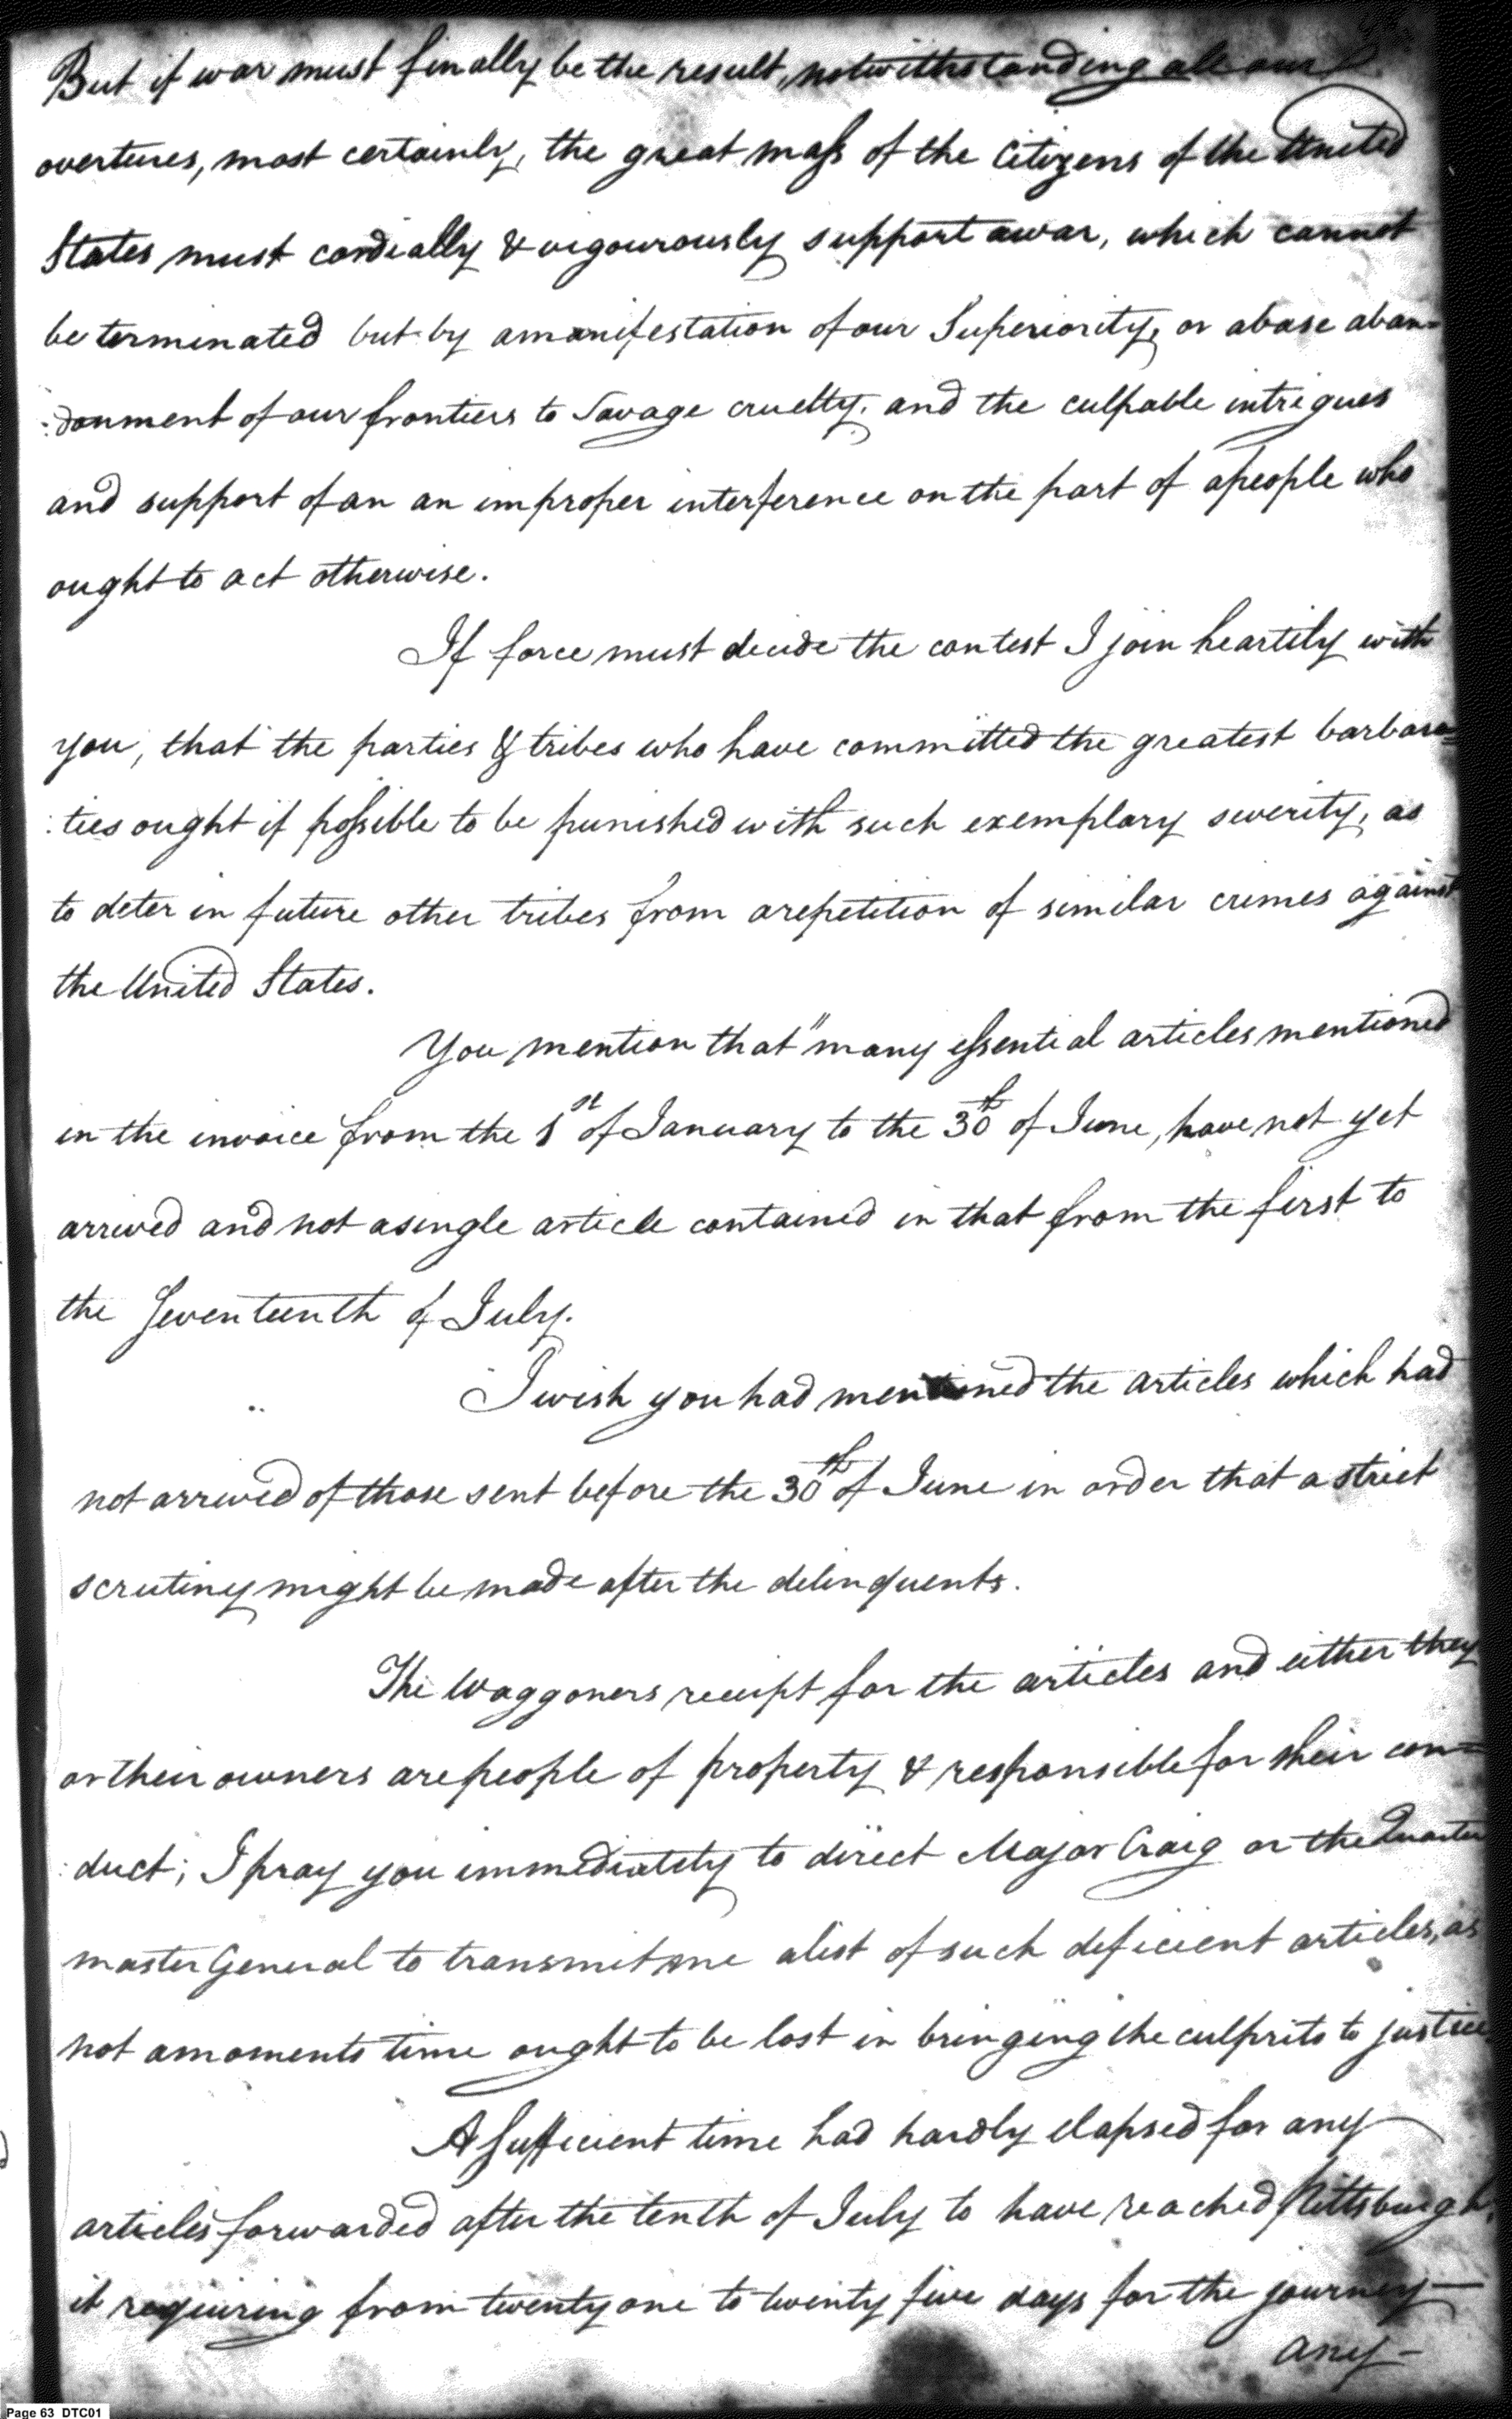 But if war must finally be the result, notwithstanding all our
overtures, most certainly, the great mass of the Citizens of the United
States must cordially & vigourously support a war, which cannot
be terminated but by a manifestation of our Superiority, or a base aban-
:donment of our frontiers to Savage cruelty, and the culpable intrigues
and support of an an improper interference on the part of a people who
ought to act otherwise.
If force must decide the contest I join heartily with
you, that the parties & tribes who have committed the greatest barbara=
:ties ought if possible to be punished with such exemplary severity, as
to deter in future other tribes from a repetition of similar crimes against
the United States.
You mention that "many essential articles mentioned
in the invoice from the 1st of January to the 30th of June, have not yet
arrived and not a single article contained in that from the first to
the Seventeenth of July.
I wish you had mentioned the articles which had
not arrived of those sent before the 30th of June in order that a strict
scrutiny might be made after the delinquents.
The Waggoners receipt for the articles and either they
or their owners are people of property & responsible for their con=
:duct; I pray you immediately to direct Major Craig or the Quarter
master General to transmit me a list of such deficient articles, as
not a moments time ought to be lost in bringing the culprits to justice
A Sufficient time had hardly elapsed for any
articles forwarded after the tenth of July to have reached Pittsburgh,
it requiring from twenty one to twenty five days for the journey—
any—
Page 63 DTC01